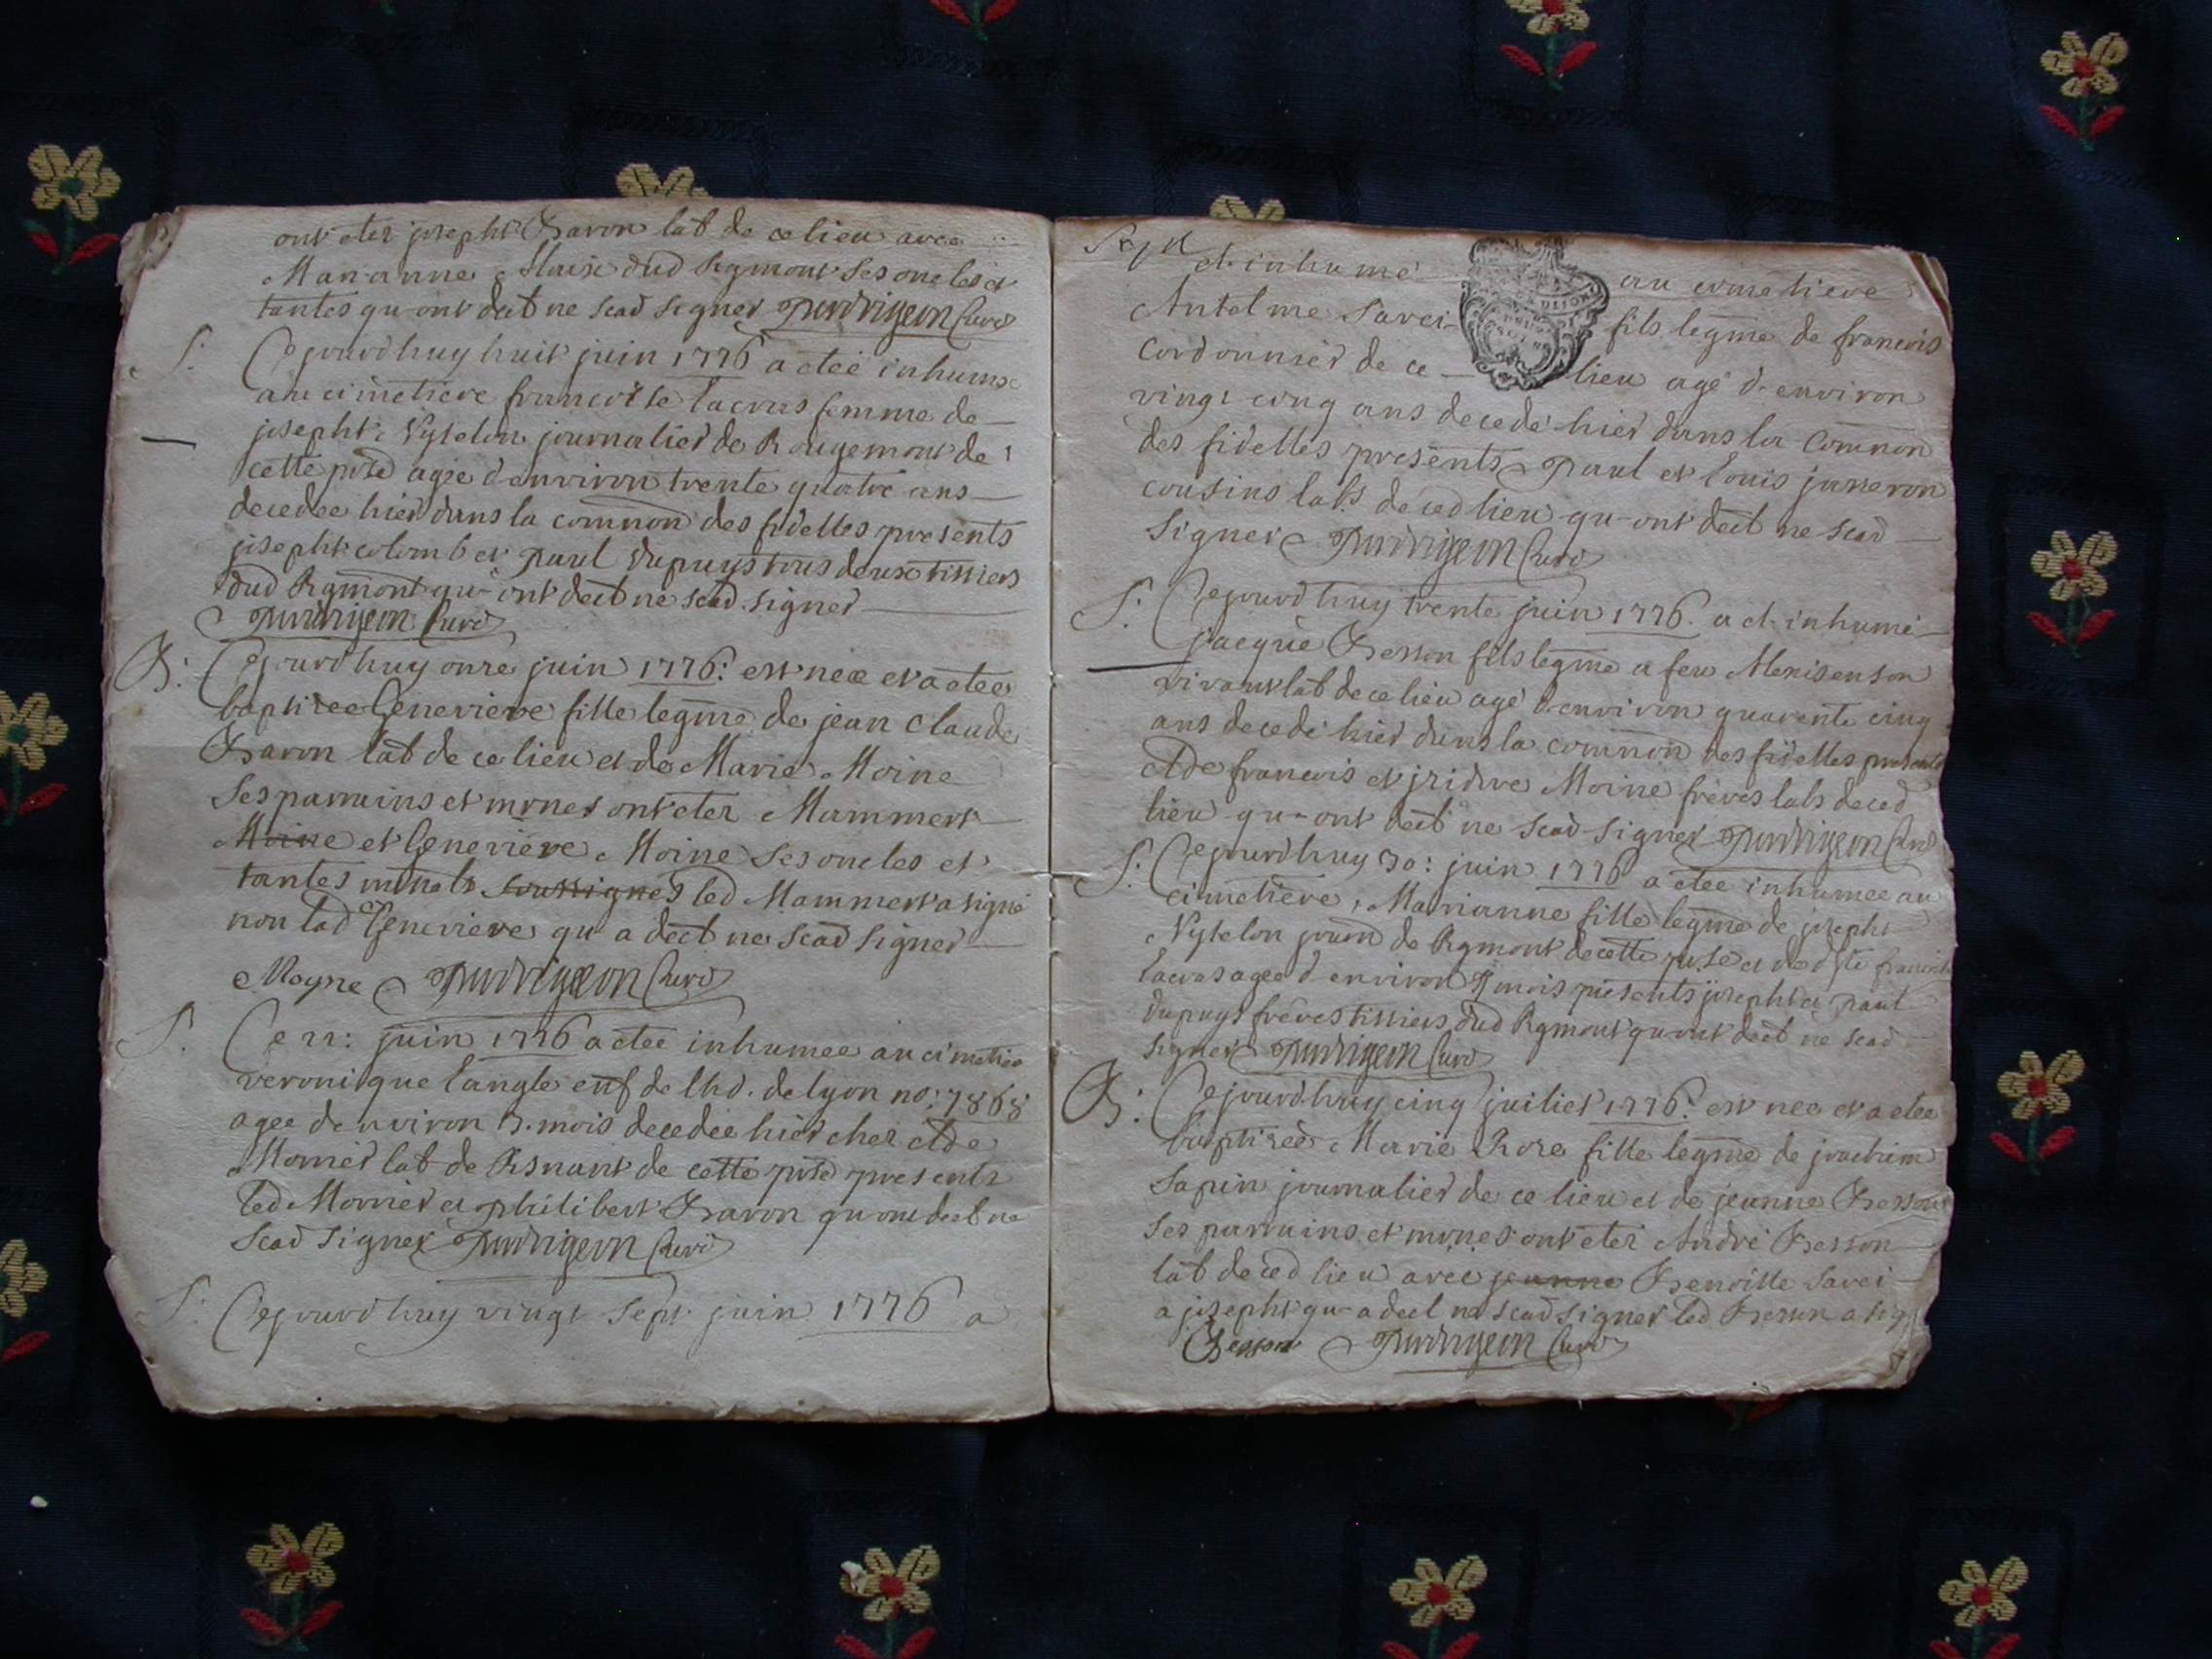 ont eter joseph Baron lab de ce lieu avec
Marianne dud Rgmont ses oncles et
tantes qu-ont declt ne scad signer Curé
S. Cejourdhuy huit juin 1776 a eteé inhumé
au cimetiere francoise lacras femme de
joseph Nytelon journalier de Rougemont de
cette psse agée d'environ trente quatre ans
decedee hier dans la comnon des fidelles presents
joseph colomb et paul dupuys tous deux tissiers
dud Rgmont qu-ont declt ne scad signer
Curé
B: Cejourdhuy onze juin 1776: est néé et a eteé
baptizeé Genevieve fille legme de jean claude
Baron lab de ce lieu et de Marie Moine
Ses parrains et mrnes ont eter Mammert
Moine et Genevieve Moine ses oncles et
tantes soussignés led Mammert a signé
non lad Genevieve qu a declt ne scad signer
Moyne Curé
S. Ce 22: juin 1776 a eteé inhumee au cimetiere
veronique langle enf de lhd. de lyon no: 7868
ageé denviron 3. mois decedeé hier chez
Monier lab de Rsnant de cette psse presents
led Monier et philibert Baron qu ont declt ne
scad signer Curé
S: Cejourdhuy vingt sept juin 1776 a
Sept et. inhumé au cimetiere
Antelme Savei fils legme de francois
Cordonnier de ce lieu agé d'environ
vingt cinq ans decedé hier dans la Comnon
des fidelles presents paul et louis janneron
cousins labs de ced lieu qu-ont declt ne scad
signer Curé
S. Cejourdhuy trente juin 1776. a et. inhumé
jacque Besson fils legme a feu Alexis en son
vivant lab de ce lieu agé d'environ quarente cinq
ans decedé hier dans la comnon des fidelles presents
francois et jsidore Moine freres labs de ced
lieu qu-ont declt ne scad signer Curé
S: Cejourdhuy 30: juin 1776 a eteé inhumee au
cimetiere, Marianne fille legme de joseph
Nytelon journ de Rgmont de cette psse et francoise
lacras agee d environ mois presents joseph et paul
dupuys freres tissiers dud Rgmont qu ont declt ne scad
signer Curé
B: Cejourdhuy cinq juiliet 1776: est néé et a eteé
baptizeé Marie Roze fille legme de joachim
Sapin journalier de ce lieu et de jeanne Besson
Ses parrains et mrnes ont eter André Besson
lab de ced lieu avec jeanne Benoitte Savei
a joseph qu-a declt ne scad signer led Besson a sig
Besson Curé